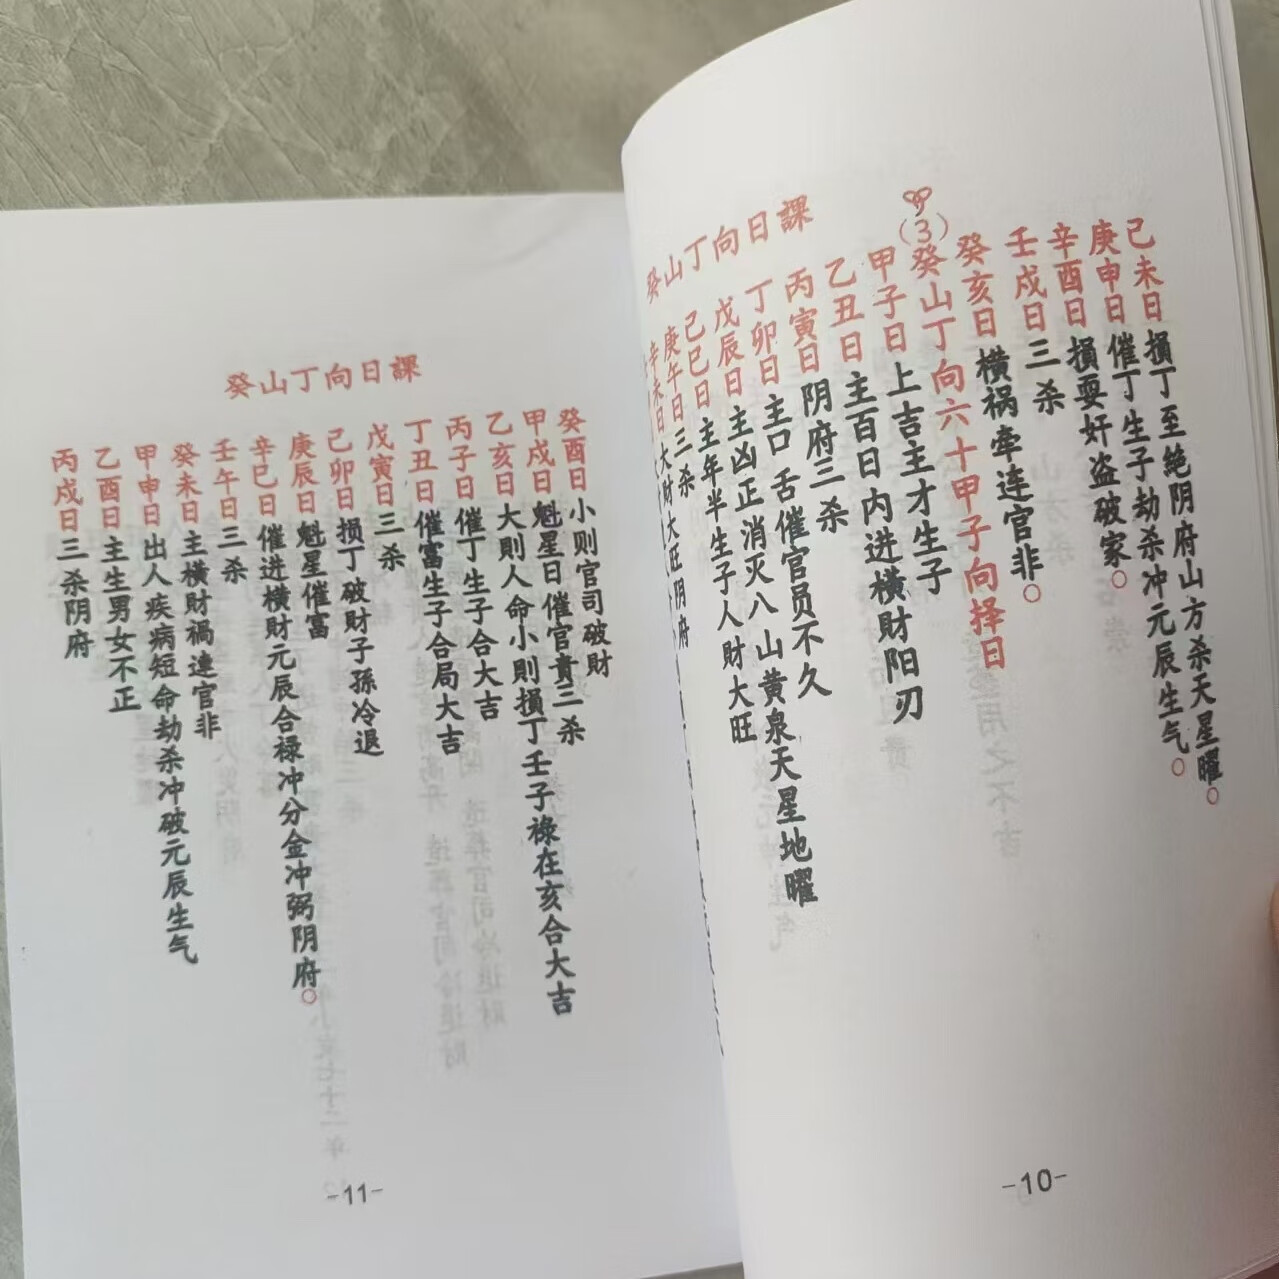 己未日損丁至絶阴府山方杀天星曜○
庚申日催丁生子劫杀冲元辰生气○
辛酉日損耍奸盗破家○
壬戍日三杀
癸亥日横祸牵连官非○
(3)癸山丁向六十甲子向择日
甲子日上吉主才生子
乙丑日主百日内进横財阳刃
丙寅日阴府三杀
丁卯日主口舌催官员不久
戊辰日主凶正消灭八山黄泉天星地曜
己巳日主年半生子人財大旺
庚午日三杀
辛未日大財大旺阴府
癸山丁向日課
-10-
癸山丁向日課
癸酉日小则官司破財
甲戍日魁星日催官貴三杀
乙亥日大則人命小則損丁壬子祿在亥合大吉
丙子日催丁生子合大吉
丁丑日催富生子合局大吉
戊寅日三杀
己卯日損丁破財子孫冷退
庚辰日魁星催富
辛巳日催进横財元辰合禄冲分金冲弼阴府○
壬午日三杀
癸未日主横財禍連官非
甲申日出人疾病短命劫杀冲破元辰生气
乙酉日主生男女不正
丙戍日三杀阴府
-11-